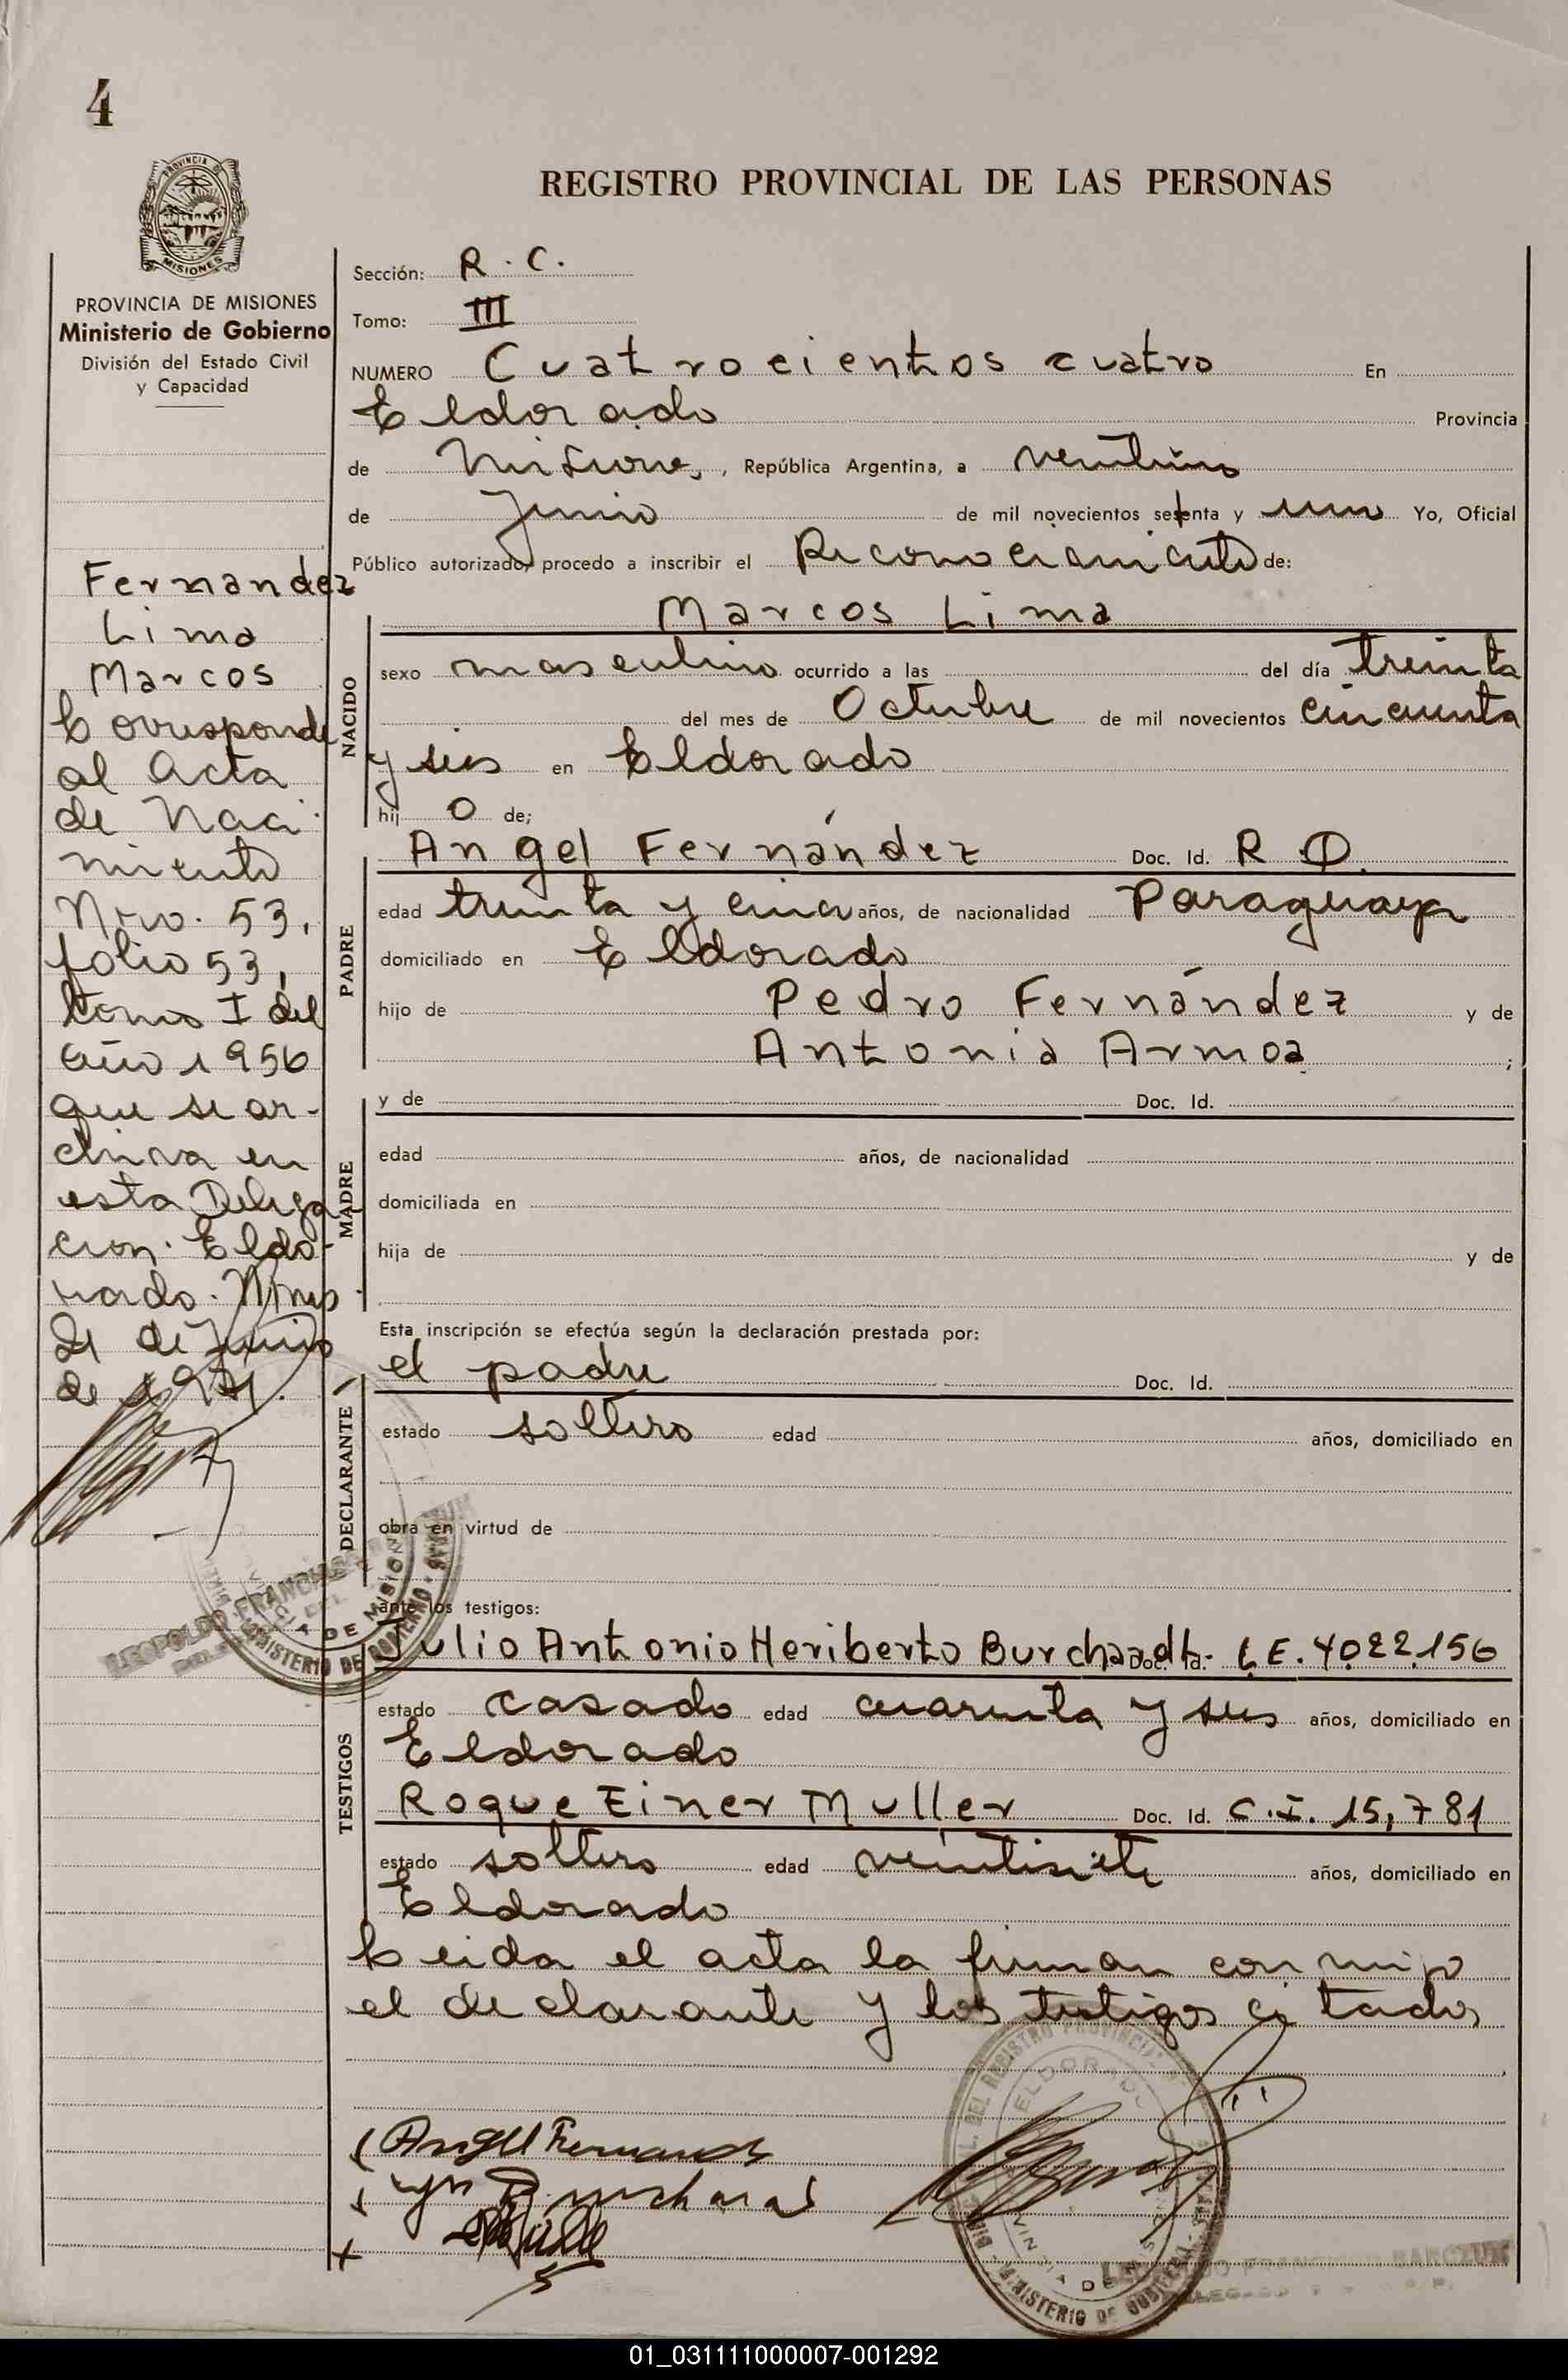 4
PROVINCIA
MISIONES
PROVINCIA DE MISIONES
Ministerio de Gobierno
División del Estado Civil
y Capacidad
Fernandez
Lima
Marcos
Corresponde
al Acta
de Naci-
miento
Nro. 53,
folio 53,
tomo I del
año 1956
que se ar-
chiva en
esta Delega
cion. Eldo-
rado. Mnes
21 de Junio
de 1971.
REGISTRO PROVINCIAL DE LAS PERSONAS
Sección: R. C.
Tomo: III
NUMERO Cuatrocientos cuatro En
Eldorado Provincia
de Misiones, República Argentina, a veintiuno
de Junio de mil novecientos setenta y uno Yo, Oficial
Público autorizado, procedo a inscribir el Reconocimiento de:
Marcos Lima
NACIDO
sexo masculino ocurrido a las del día treinta
del mes de Octubre de mil novecientos cincuenta
y seis en Eldorado
hij o de;
Angel Fernández Doc. Id. R O.
PADRE
edad treinta y cinco años, de nacionalidad Paraguaya
domiciliado en Eldorado
hijo de Pedro Fernández y de
Antonia Armoa ;
y de Doc. Id.
MADRE
edad años, de nacionalidad
domiciliada en
hija de y de
Esta inscripción se efectúa según la declaración prestada por:
el padre Doc. Id.
DECLARANTE
estado soltero edad años, domiciliado en
obra en virtud de
ante los testigos:
LEOPOLDO FRANCISCO
PROVINCIA DE MISIONES
MINISTERIO DE GOBIERNO
Julio Antonio Heriberto Burchardt Doc. Id. L.E. 4022.156
TESTIGOS
estado casado edad cuarenta y seis años, domiciliado en
Eldorado
Roque Einer Muller Doc. Id. C.I. 15,781
estado soltero edad veintisiete años, domiciliado en
Eldorado
Leida el acta la firman conmigo
el declarante y los testigos citados
DEL REGISTRO PROVINCIAL
ELDORADO
PROVINCIA DE MISIONES
MINISTERIO DE GOBIERNO
Angel Fernandez
LEOPOLDO FRANCISCO BARCZUK
01_031111000007-001292